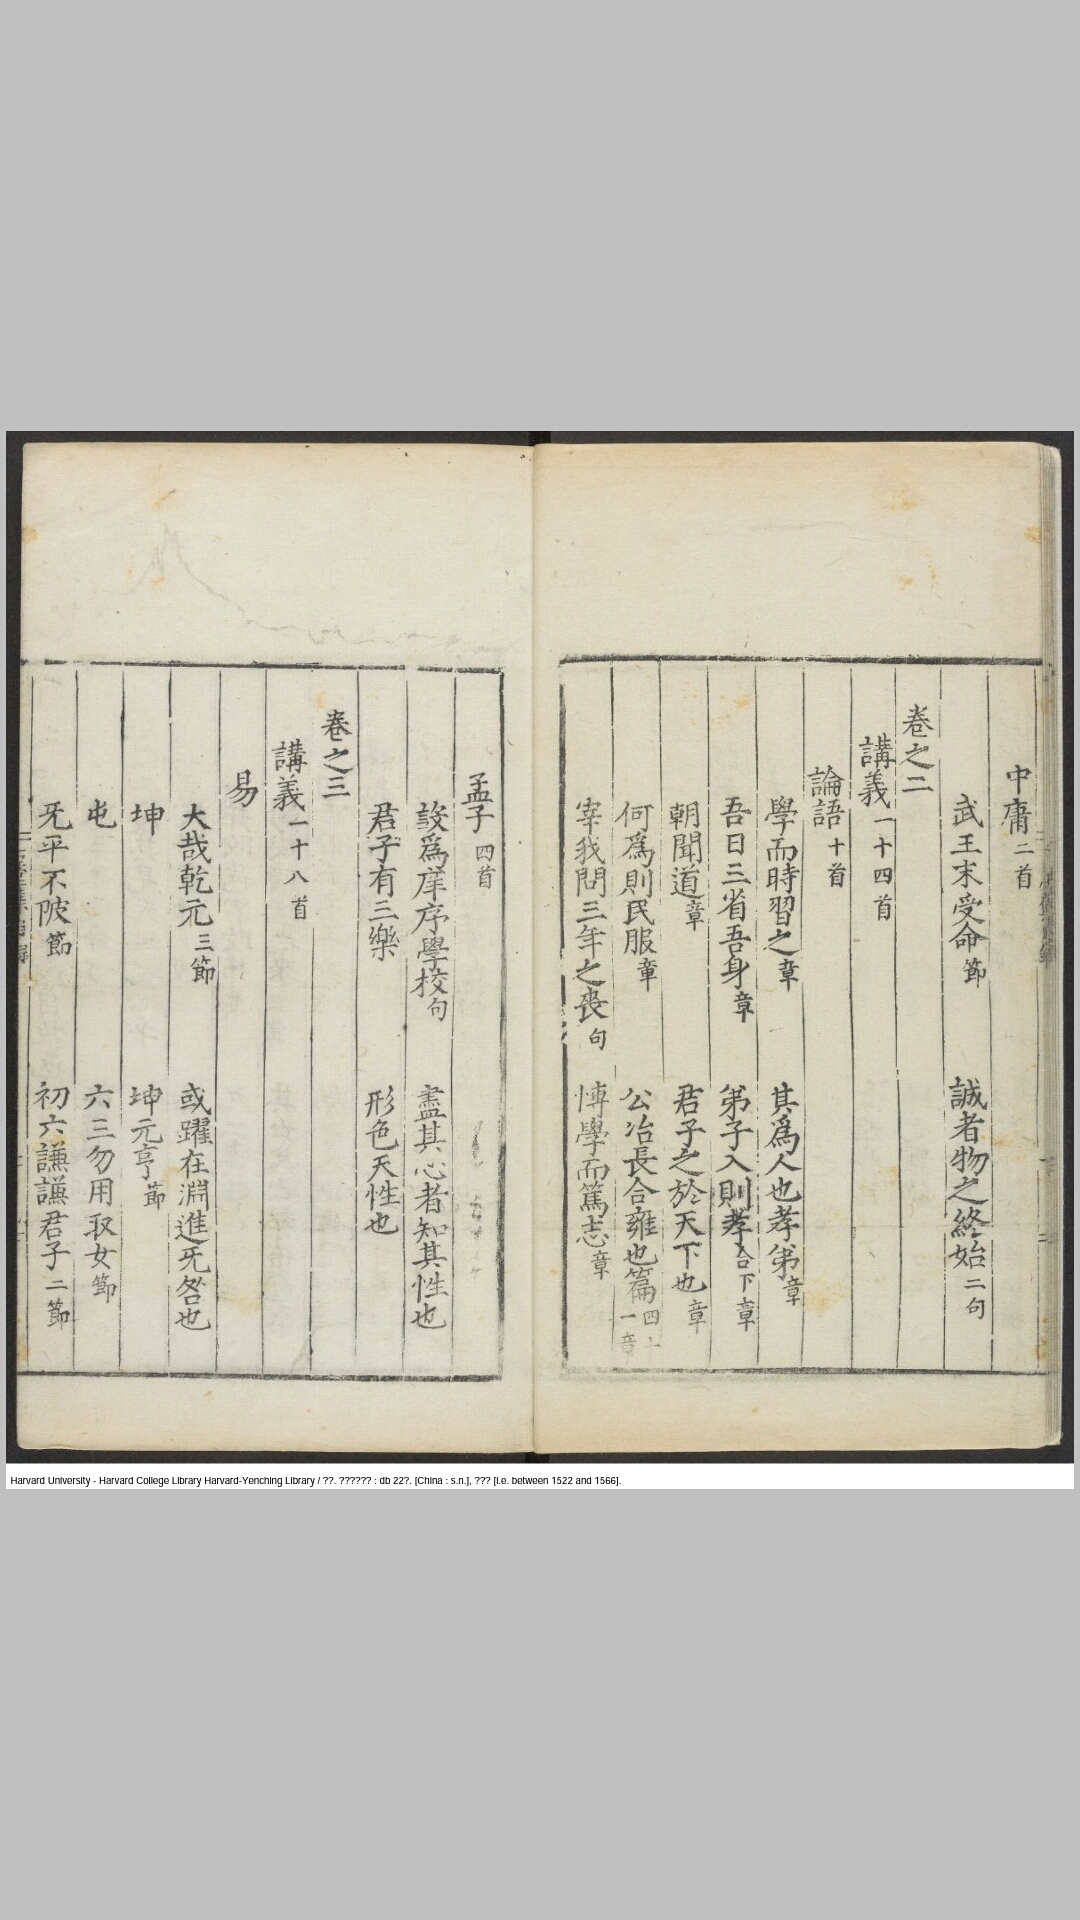 中庸二首
武王末受命節 誠者物之終始二句
卷之二
講義一十四首
論語十首
學而時習之章 其為人也孝弟章
吾日三省吾身章 弟子入則孝合下章
朝聞道章 君子之於天下也章
何為則民服章 公冶長合雍也篇四十一章
宰我問三年之喪句 博學而篤志章
孟子四首
設為庠序學校句 盡其心者知其性也
君子有三樂 形色天性也
卷之三
講義一十八首
易
大哉乾元三節 或躍在淵進旡咎也
坤 坤元亨節
屯 六三勿用取女節
旡平不陂節 初六謙謙君子二節
Harvard University - Harvard College Library Harvard-Yenching Library / ??. ?????? : db 22?. [China : s.n.], ??? [I.e. between 1522 and 1566].